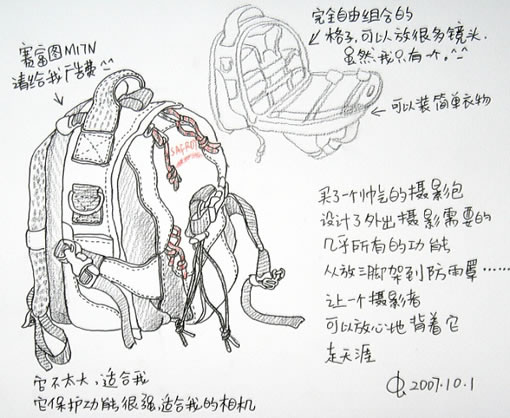 赛富图M17N
请给我广告费^^
完全自由组合的
格子,可以放很多镜头.
虽然我只有一个。^^
可以装简单衣物
买了一个帅气的摄影包
设计了外出摄影需要的
几乎所有的功能
从放三脚架到防雨罩……
让一个摄影者
可以放心地背着它
走天涯
它不太大,适合我
它保护功能很强,适合我的相机
2007.10.1